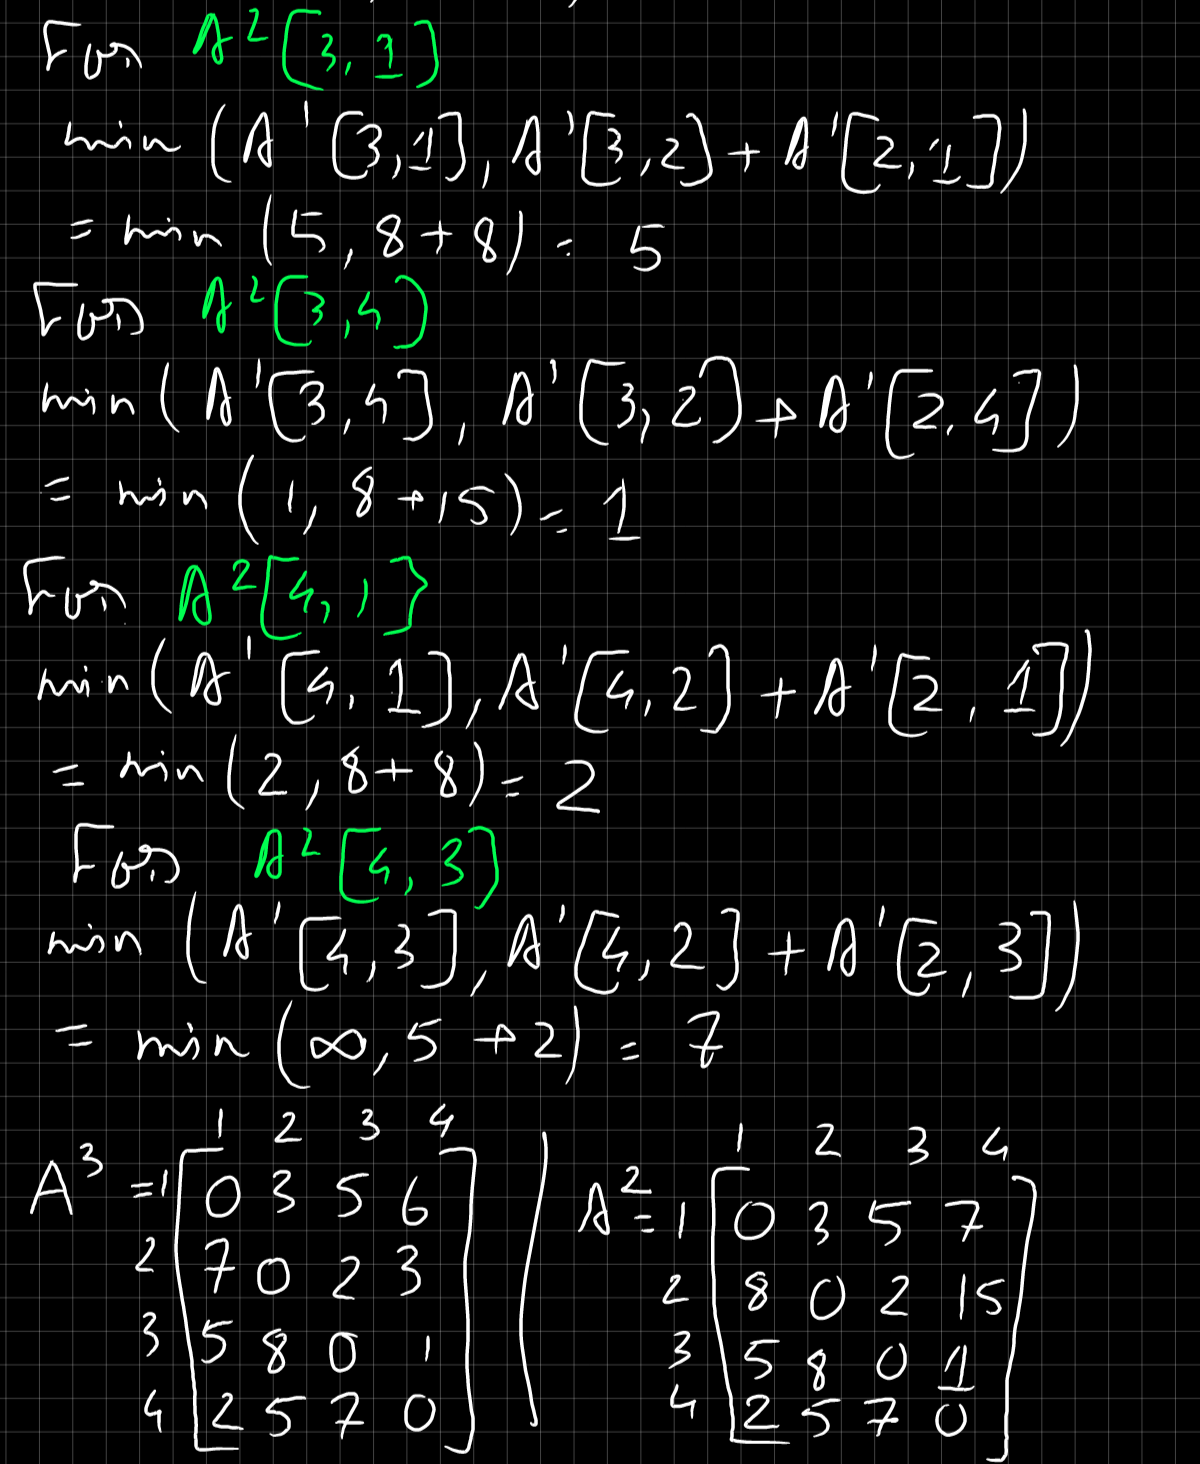 For A²[3,1]
min (A¹[3,1], A¹[3,2] + A¹[2,1])
= min (5, 8+8) = 5
For A²[3,4]
min (A¹[3,4], A¹[3,2] + A¹[2,4])
= min (1, 8+15) = 1
For A²[4,1]
min (A¹[4,1], A¹[4,2] + A¹[2,1])
= min (2, 8+8) = 2
For A²[4,3]
min (A¹[4,3], A¹[4,2] + A¹[2,3])
= min (∞, 5+2) = 7
1 2 3 4
A³ = 1 0 3 5 6
2 7 0 2 3
3 5 8 0 1
4 2 5 7 0
1 2 3 4
A² = 1 0 3 5 7
2 8 0 2 15
3 5 8 0 1
4 2 5 7 0